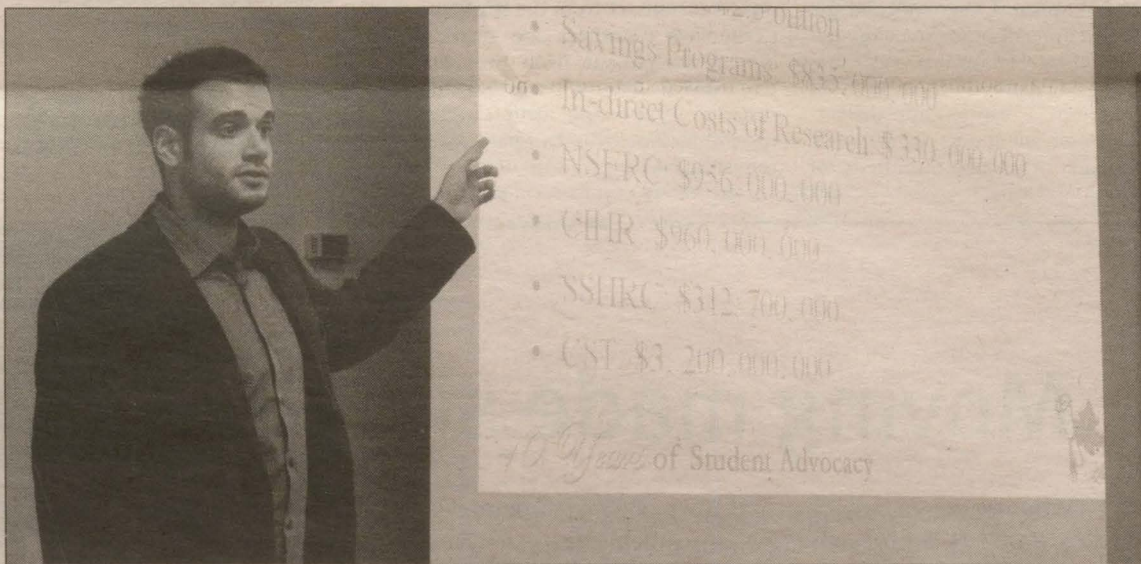 billion
• Savings Programs: $835, 000, 000
• In-direct Costs of Research: $ 330, 000, 000
• NSERC: $956, 000, 000
• CIHR: $960, 000, 000
• SSHRC: $312, 700, 000
• CST: $3, 200, 000, 000
10 Years of Student Advocacy